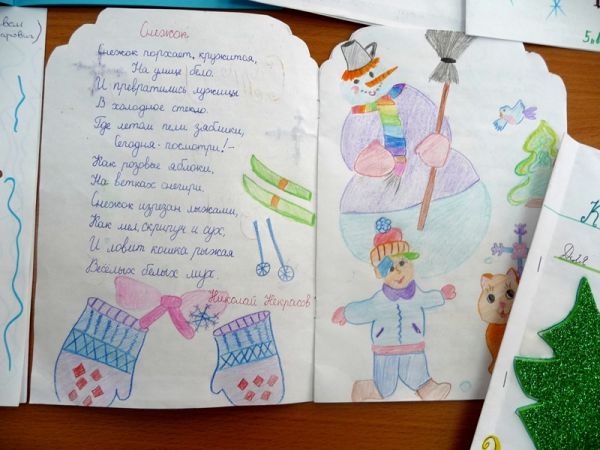 вем
арович)
Снежок
Снежок порхает, кружится,
На улице бело.
И превратились лужицы
В холодное стекло.
Где летом пели зяблики,
Сегодня - посмотри! -
Как розовые яблоки,
На ветках снегири.
Снежок изрезан лыжами,
Как мел, скрипуч и сух,
И ловит кошка рыжая
Весёлых белых мух.
Николай Некрасов
Для